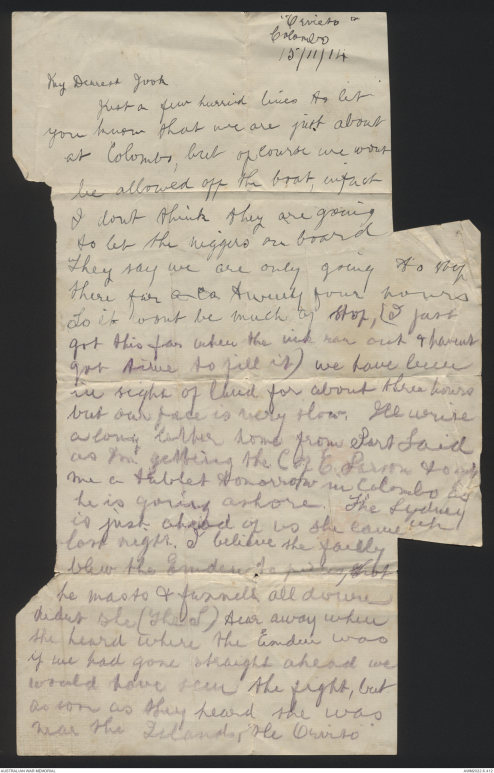 "Orvieto"
Colombo
15/11/14
My Dearest Jook
Just a few hurried lines to let
you know that we are just about
at Colombo, but of course we wont
be allowed off the boat, in fact
I dont think they are going
to let the niggers on board
They say we are only going to stop
there for a ca twenty four hours
So it wont be much of stop, (I just
got this far when the ink ran out & havent
got time to fill it) we have been
in sight of land for about three hours
but our pace is very slow. Ill write
a long letter home from Port Said
as Im getting the C of E. Parson to get
me a tablet tomorrow in Colombo as
he is going ashore. The Sydney
is just ahead of us she came up
last night. I believe she fairly
blew the Emden to pieces, shot
he masts & funnells all down
didnt she (The S) tear away when
she heard where the Emden was
if we had gone straight ahead we
would have seen the fight, but
as soon as they heard she was
near the Islands, the Orvieto
AUSTRALIAN WAR MEMORIAL